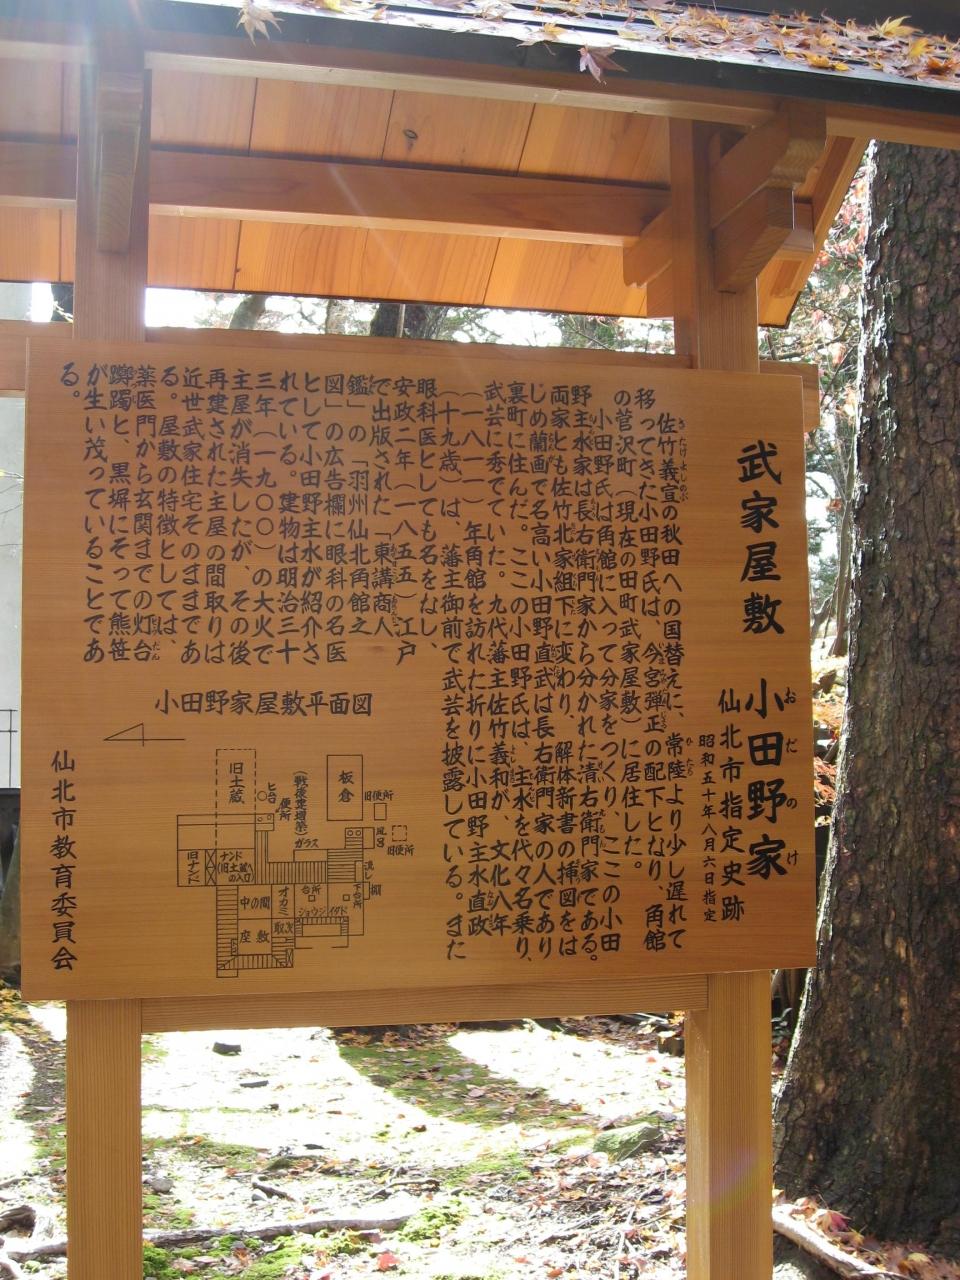 武家屋敷 小田野家
おだのけ
仙北市指定史跡
昭和五十年八月六日指定
佐竹義宣の秋田への国替えに、常陸より少し遅れて
移ってきた小田野氏は、今宮弾正の配下となり、角館
の菅沢町(現在の田町武家屋敷)に居住した。
小田野氏は角館に入って分家をつくり、ここの小田
野主水家は長右衛門家から分かれた清右衛門家である。
両家とも佐竹北家組下に変わり、解体新書の挿図をは
じめ蘭画で名高い小田野直武は長右衛門家の人であり
裏町に住んだ。ここの小田野氏は、主水を代々名乗り、
武芸に秀でていた。九代藩主佐竹義和が、文化八年
(一八一一)年角館を訪れた折りに小田野主水直政
(十九歳)は、藩主御前で武芸を披露している。また
眼科医としても名をなし、
安政二年(一八五五)江戸
で出版された「東講商人
鑑」の「羽州仙北角館之
図」の広告欄に眼科の名医
として小田野主水が紹介さ
れている。建物は明治三十
三年(一九〇〇)の大火で
主屋が消失したが、その後
再建された主屋の間取りは
近世武家住宅そのままであ
る。屋敷の特徴としては、
薬医門から玄関までの灯台
躑躅と、黒塀にそって熊笹
が生い茂っていることであ
る。
小田野家屋敷平面図
板倉
旧便所
旧土蔵
(戦後壇増築)
便所
ガラス
風呂
旧便所
旧ナンド
ナンド
(旧土蔵への入口)
流し
棚
下台所
台所
オカミ
中の間
ジョウジイタド
取次
座敷
仙北市教育委員会